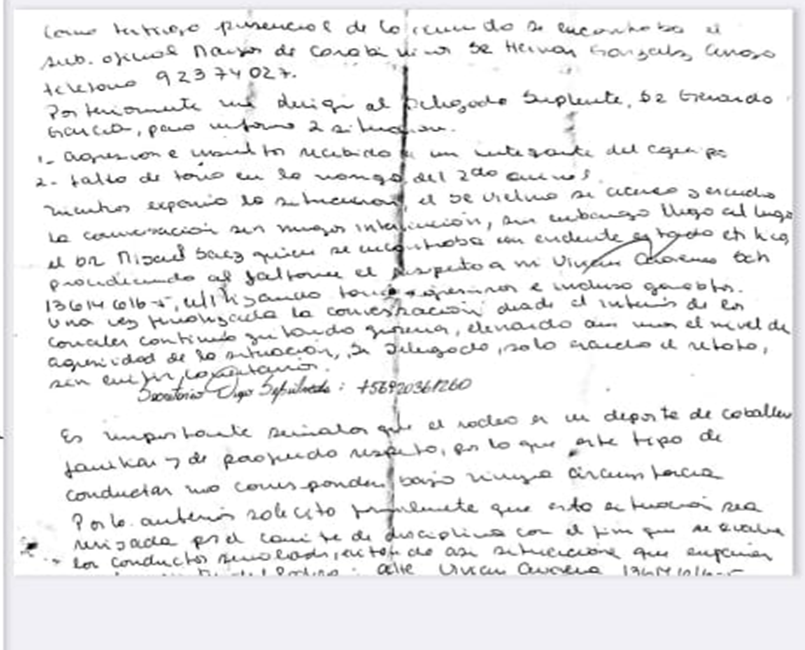 Como testigo presencial de lo ocurrido se encontraba el
sub. oficial Mayor de Carabineros Sr Hernan Gonzalez
telefono 92374027.
Posteriormente me dirigi al Delegado Suplente, Sr Gerardo
Garcia, para informar 2 situaciones.
1- agresion e insultos recibido a un integrante del equipo
2- falta de toro en la manga del 2do animal
mientras exponia la situacion, el se acerco y escucho
la conversacion sin ninguna intervención, sin embargo llego al lugar
el Sr Miguel Saez quien se encontraba en evidente estado etilico
procediendo al faltarme el respeto a mi Vivian
13614616-5, utilizando e incluso garabatos.
Una vez finalizada la conversación desde el interior de los
corrales continuo gritando groseria, elevando aun mas el nivel de
agresividad de la situacion, Sr Delegado, solo
sin emitir comentarios.
Secretario Diego Sepulveda: +56920361260
Es importante señalar que el rodeo es un deporte de caballeros
familiar y de profundo respeto, por lo que este tipo de
conductas no corresponden bajo ninguna circunstancia
Por lo anterior solicito formalmente que esta situacion sea
revisada por el comite de disciplina con el fin que se evalue
las conductas señaladas, evitando asi situaciones que
Vivian 13614616-5